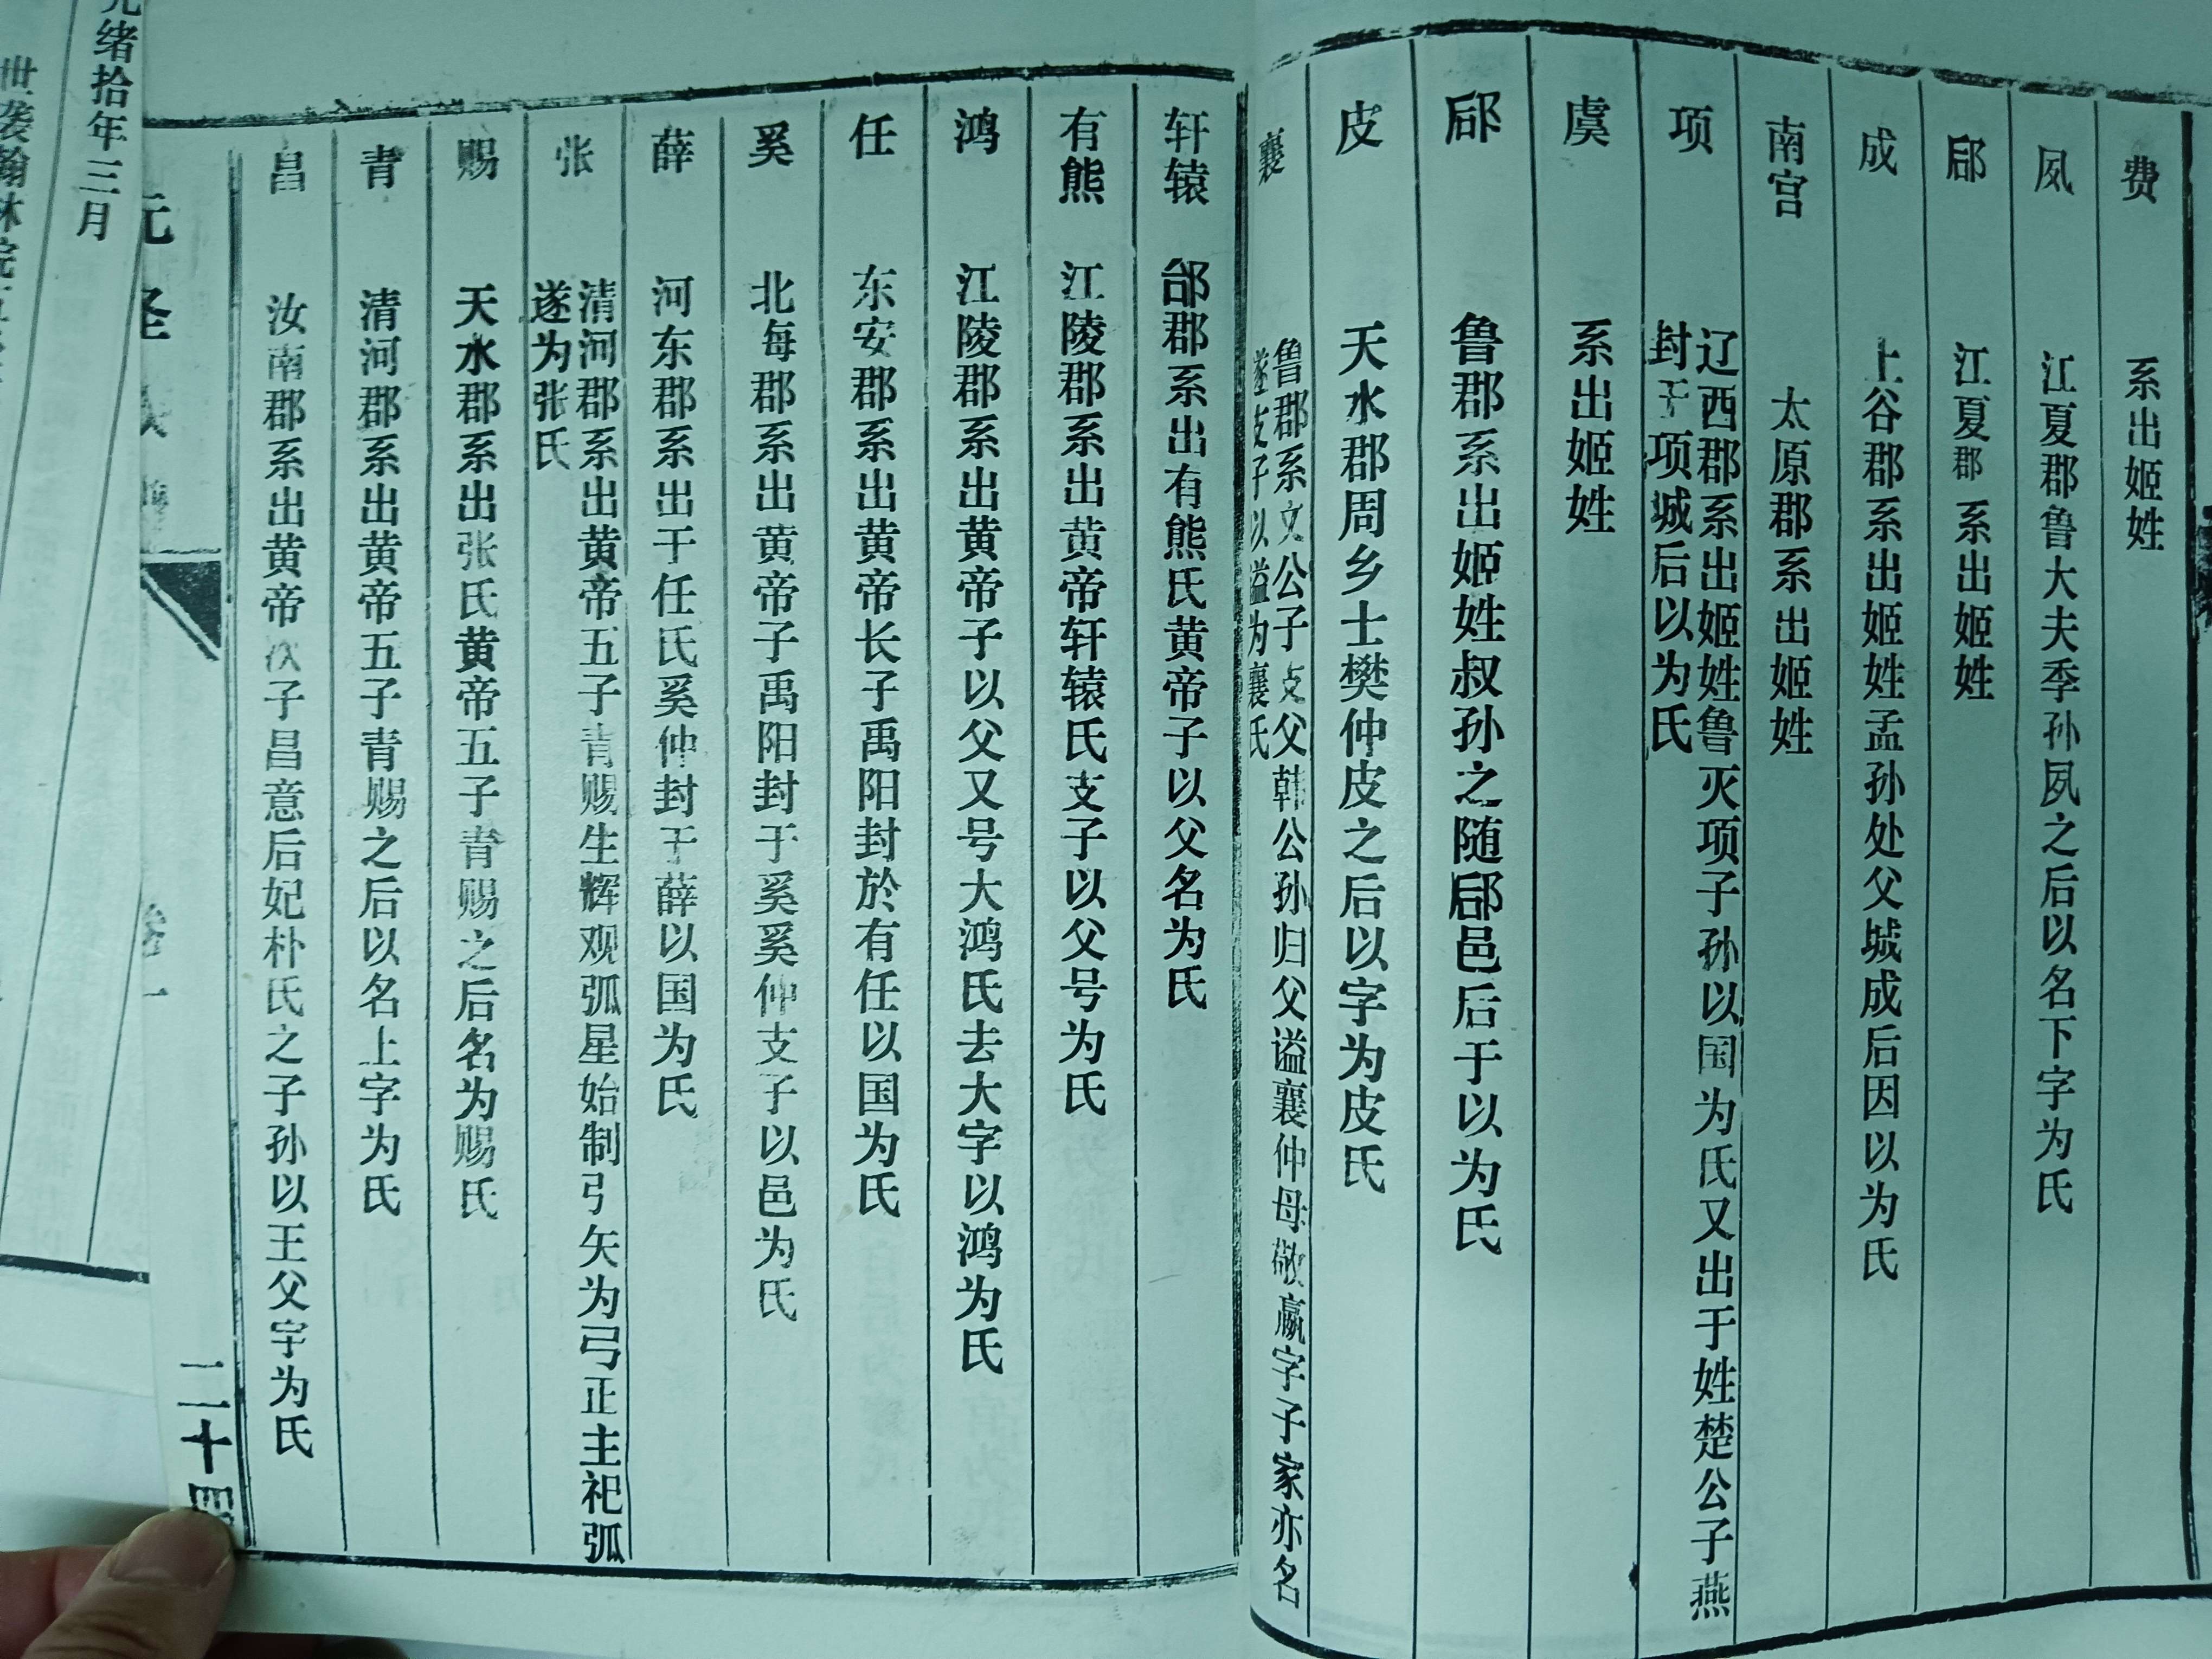 费 系出姬姓
夙 江夏郡鲁大夫季孙夙之后以名下字为氏
郈 江夏郡系出姬姓
成 上谷郡系出姬姓孟孙处父城成后因以为氏
南宫 太原郡系出姬姓
项 辽西郡系出姬姓鲁灭项子孙以国为氏又出于姓楚公子燕
封于项城后以为氏
虞 系出姬姓
郈 鲁郡系出姬姓叔孙之随郈邑后于以为氏
皮 天水郡周乡士樊仲皮之后以字为皮氏
襄 鲁郡系文公子支父韩公孙归父谥襄仲母敬嬴字子家亦名
遂支子以谥为襄氏
轩辕 邰郡系出有熊氏黄帝子以父名为氏
有熊 江陵郡系出黄帝轩辕氏支子以父号为氏
鸿 江陵郡系出黄帝子以父又号大鸿氏去大字以鸿为氏
任 东安郡系出黄帝长子禹阳封於有任以国为氏
奚 北每郡系出黄帝子禹阳封于奚奚仲支子以邑为氏
薛 河东郡系出于任氏奚仲封于薛以国为氏
张 清河郡系出黄帝五子青赐生辉观弧星始制弓矢为弓正主祀弧
遂为张氏
赐 天水郡系出张氏黄帝五子青赐之后名为赐氏
青 清河郡系出黄帝五子青赐之后以名上字为氏
昌 汝南郡系出黄帝次子昌意后妃朴氏之子孙以王父字为氏
卷一
二十四
光绪拾年三月
世袭翰林院五